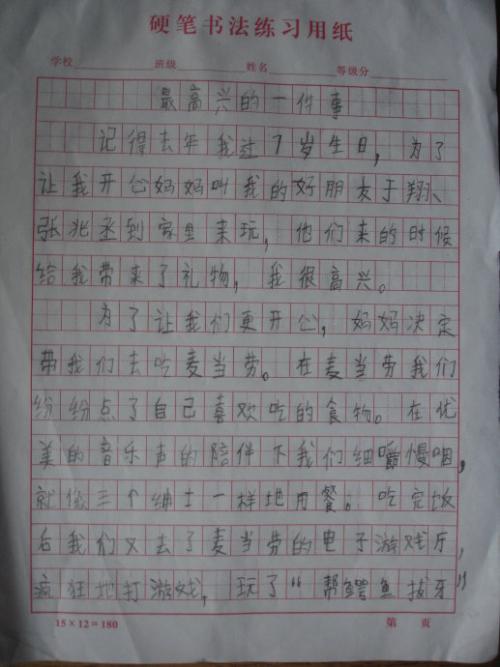 硬笔书法练习用纸
学校 班级 姓名 等级分
最高兴的一件事
记得去年我过7岁生日，为了
让我开心妈妈叫我的好朋友于翔、
张兆丞到家里来玩，他们来的时候
给我带来了礼物，我很高兴。
为了让我们更开心，妈妈决定
带我们去吃麦当劳。在麦当劳我们
纷纷点了自己喜欢吃的食物。在优
美的音乐声的陪伴下我们细嚼慢咽，
就像三个绅士一样地用餐。吃完饭
后我们又去了麦当劳的电子游戏厅，
疯狂地打游戏，玩了“帮鳄鱼拔牙”
15×12=180 第 页